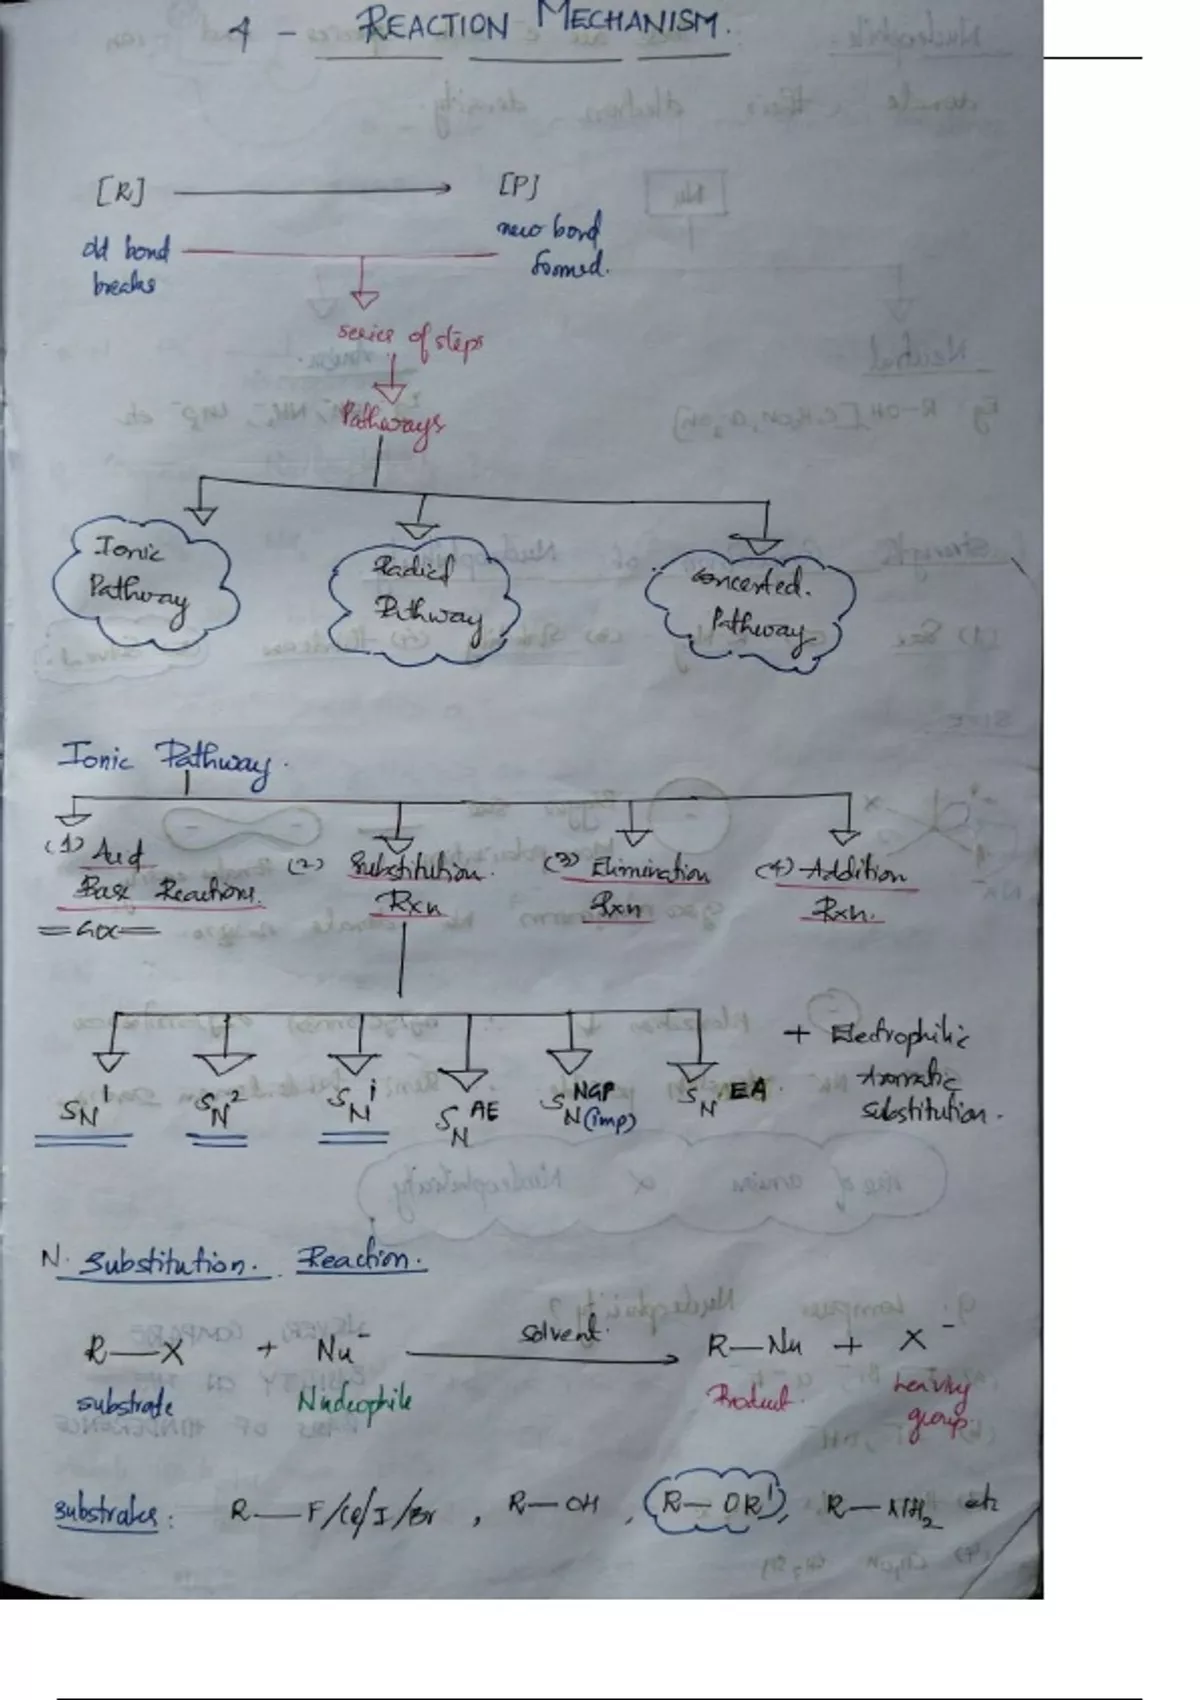 4 - REACTION MECHANISM.
[R] → [P]
old bond breaks
new bond formed.
series of steps
Pathways
Ionic Pathway
Radical Pathway
Concerted. Pathway
Ionic Pathway.
(1) Acid Base Reactions.
(2) Substitution. Rxn
(3) Elimination Rxn
(4) Addition Rxn.
SN1
SN2
SNi
SN AE
SN NGP (imp)
SN EA.
+ Electrophilic aromatic substitution.
N. Substitution. Reaction.
R—X + Nu⁻ solvent. → R—Nu + X⁻
substrate Nucleophile Product. Leaving group.
substrates: R—F/Cl/I/Br, R—OH, R—OR', R—NH₂ etc